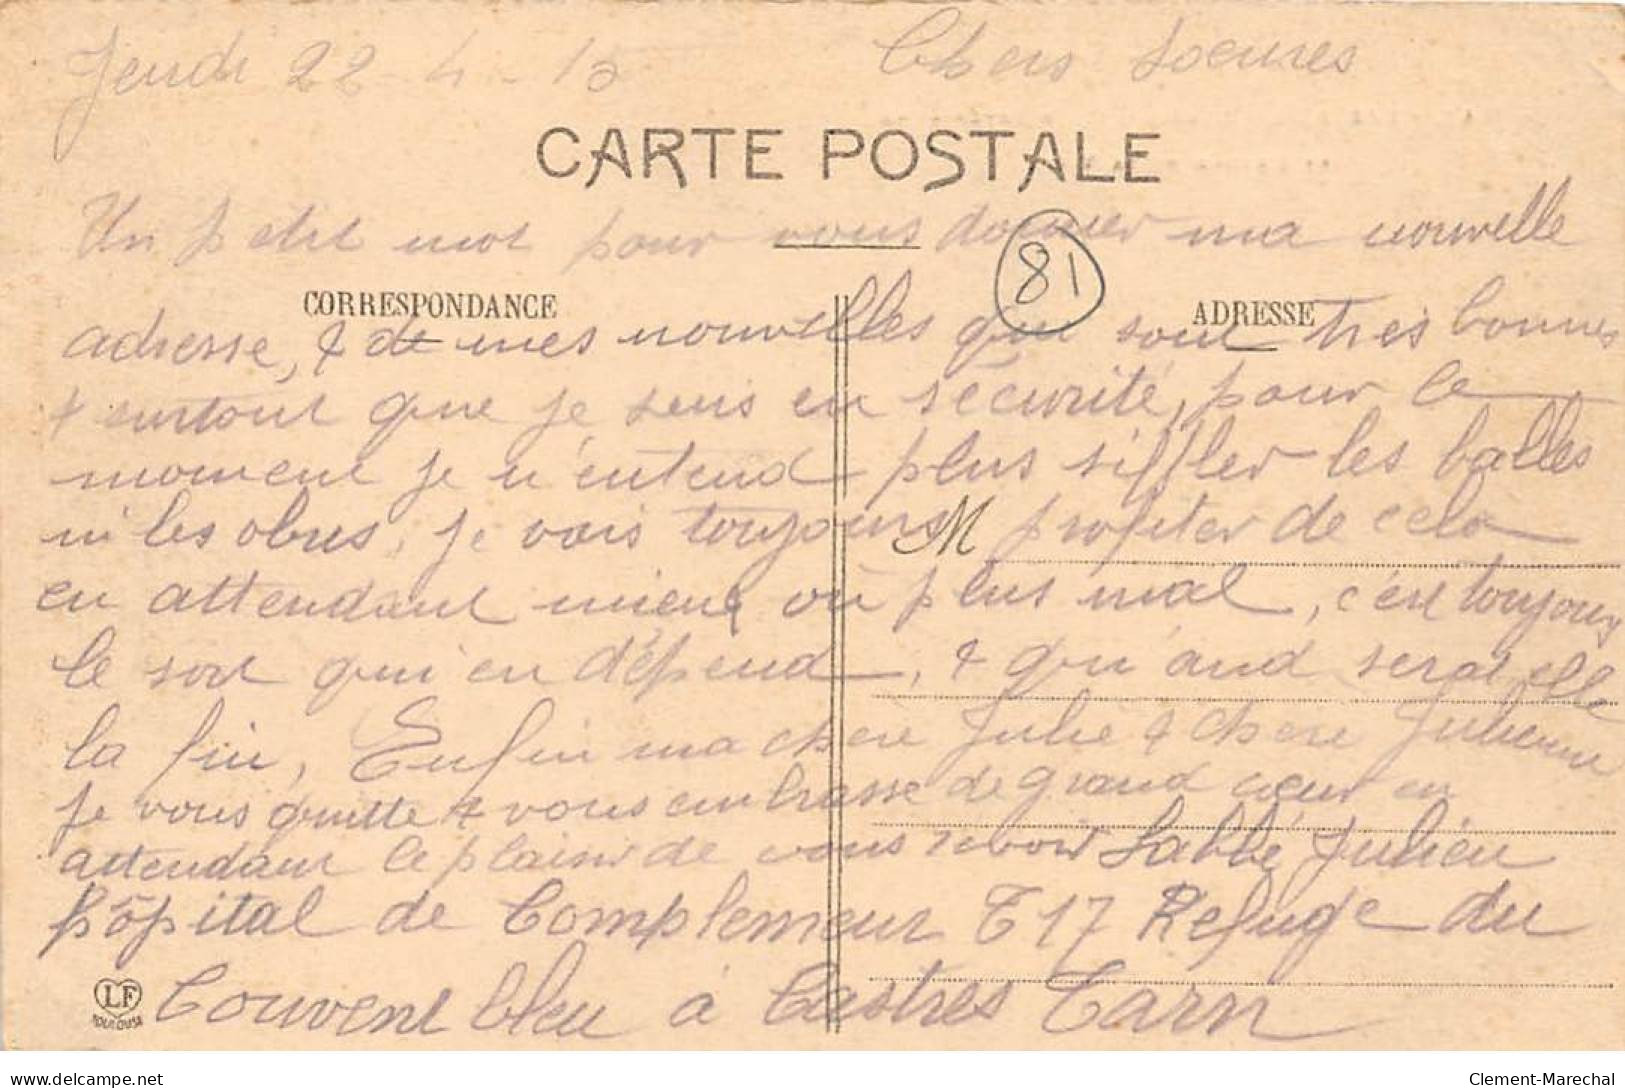 Jeudi 22-4-15 Chers soeures
CARTE POSTALE
Un petit mot pour vous donner ma nouvelle
81
CORRESPONDANCE ADRESSE
adresse, & de mes nouvelles qui sont tres bonnes
& surtout que je suis en sécurité, pour le
moment je n'entend plus siffler les balles
ni les obus, je vais toujours profiter de cela
M
en attendant mieux ou plus mal, c'est toujours
le sort qui en dépend, & qu'and serat elle
la fin, Enfin ma chere Julie & chere Julienne
je vous quitte & vous embrasse de grand cœur en
attendant le plaisir de vous revoir Labbé Julien
hôpital de Complement T 17 Refuge du
Couvent bleu à Castres Tarn
LF
TOULOUSE
Clement-Marechal
www.delcampe.net